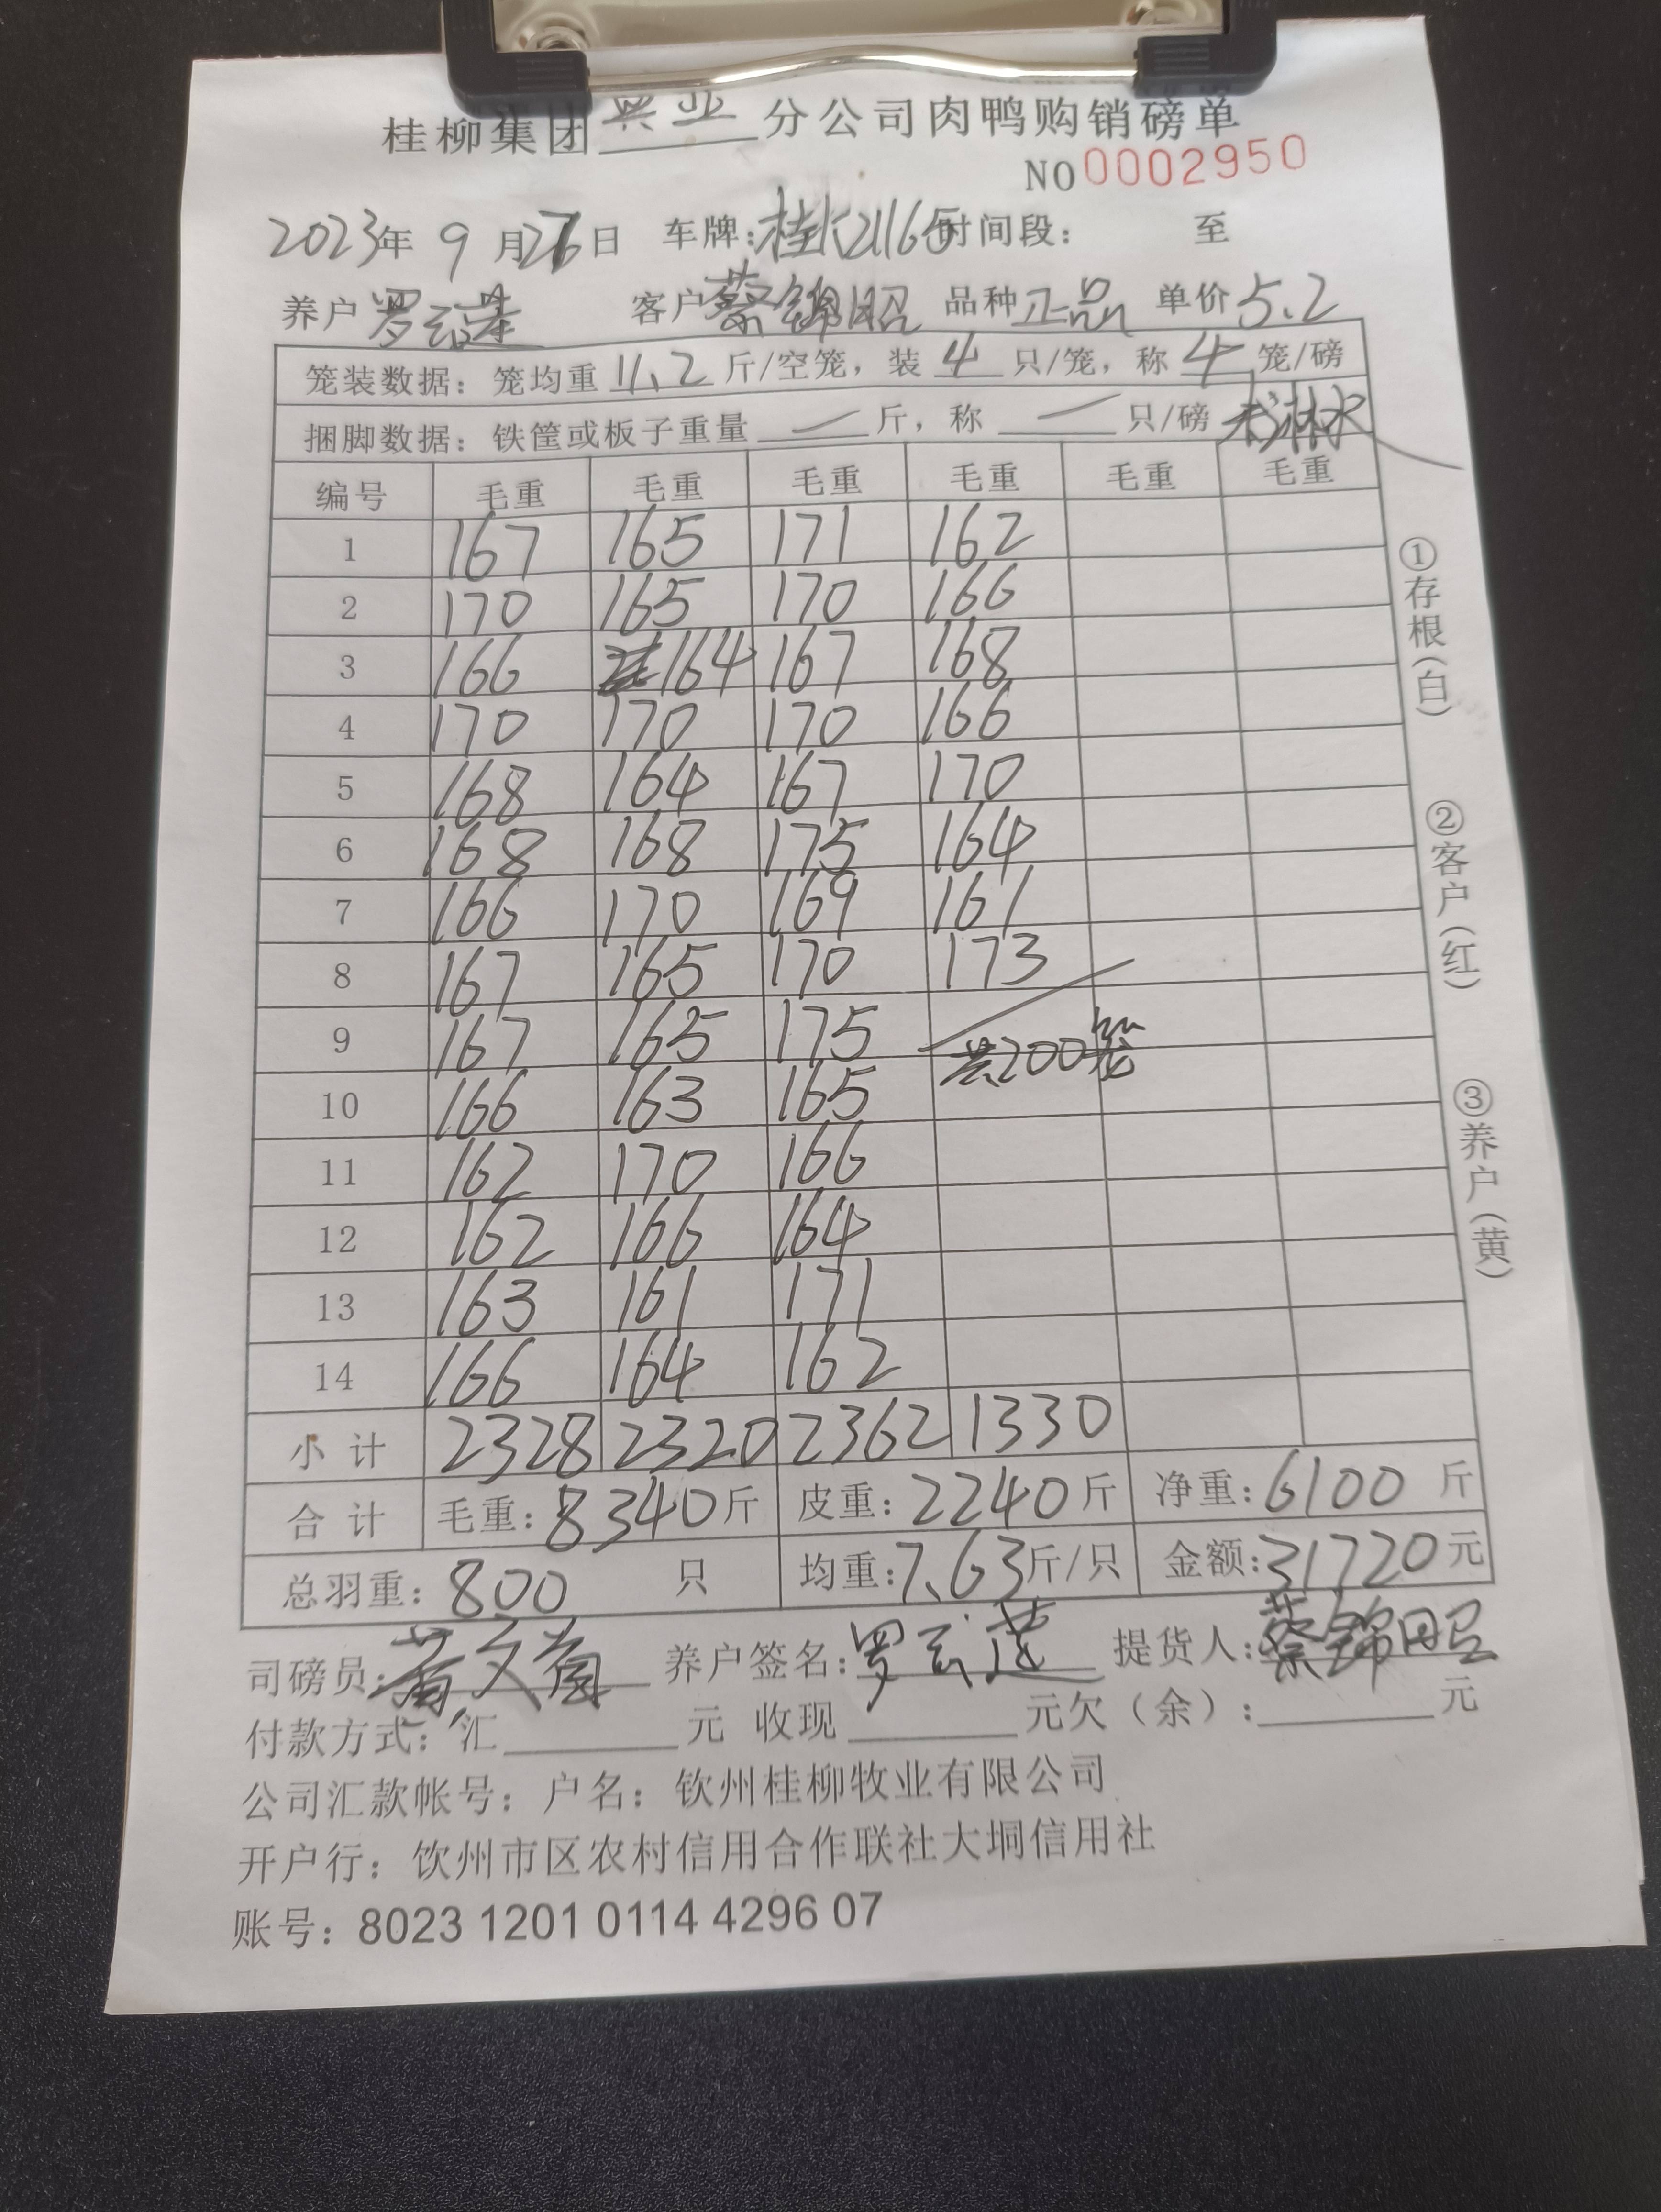 桂柳集团兴业分公司肉鸭购销磅单
NO 0002950
2023年 9 月 日 车牌:桂K21165 时间段: 至
养户 罗云莲 客户 蔡锦昭 品种 正品 单价 5.2
笼装数据: 笼均重 11.2 斤/空笼, 装 4 只/笼, 称 4 笼/磅
捆脚数据: 铁筐或板子重量 — 斤, 称 — 只/磅 淋水
编号 毛重 毛重 毛重 毛重 毛重 毛重
1 167 165 171 162
2 170 165 170 166
3 166 164 167 168
4 170 170 170 166
5 168 164 167 170
6 168 168 175 164
7 166 170 169 161
8 167 165 170 173
9 167 165 175 共200笼
10 166 163 165
11 162 170 166
12 162 166 164
13 163 161 171
14 166 164 162
小计 2328 2320 2362 1330
合计 毛重: 8340斤 皮重: 2240斤 净重: 6100 斤
总羽重: 800 只 均重: 7.63斤/只 金额: 31720元
司磅员: 养户签名: 罗云莲 提货人: 蔡锦昭
付款方式: 汇 元 收现 元欠(余): 元
公司汇款帐号: 户名: 钦州桂柳牧业有限公司
开户行: 钦州市区农村信用合作联社大垌信用社
账号: 8023 1201 0114 4296 07
①存根(白)
②客户(红)
③养户(黄)